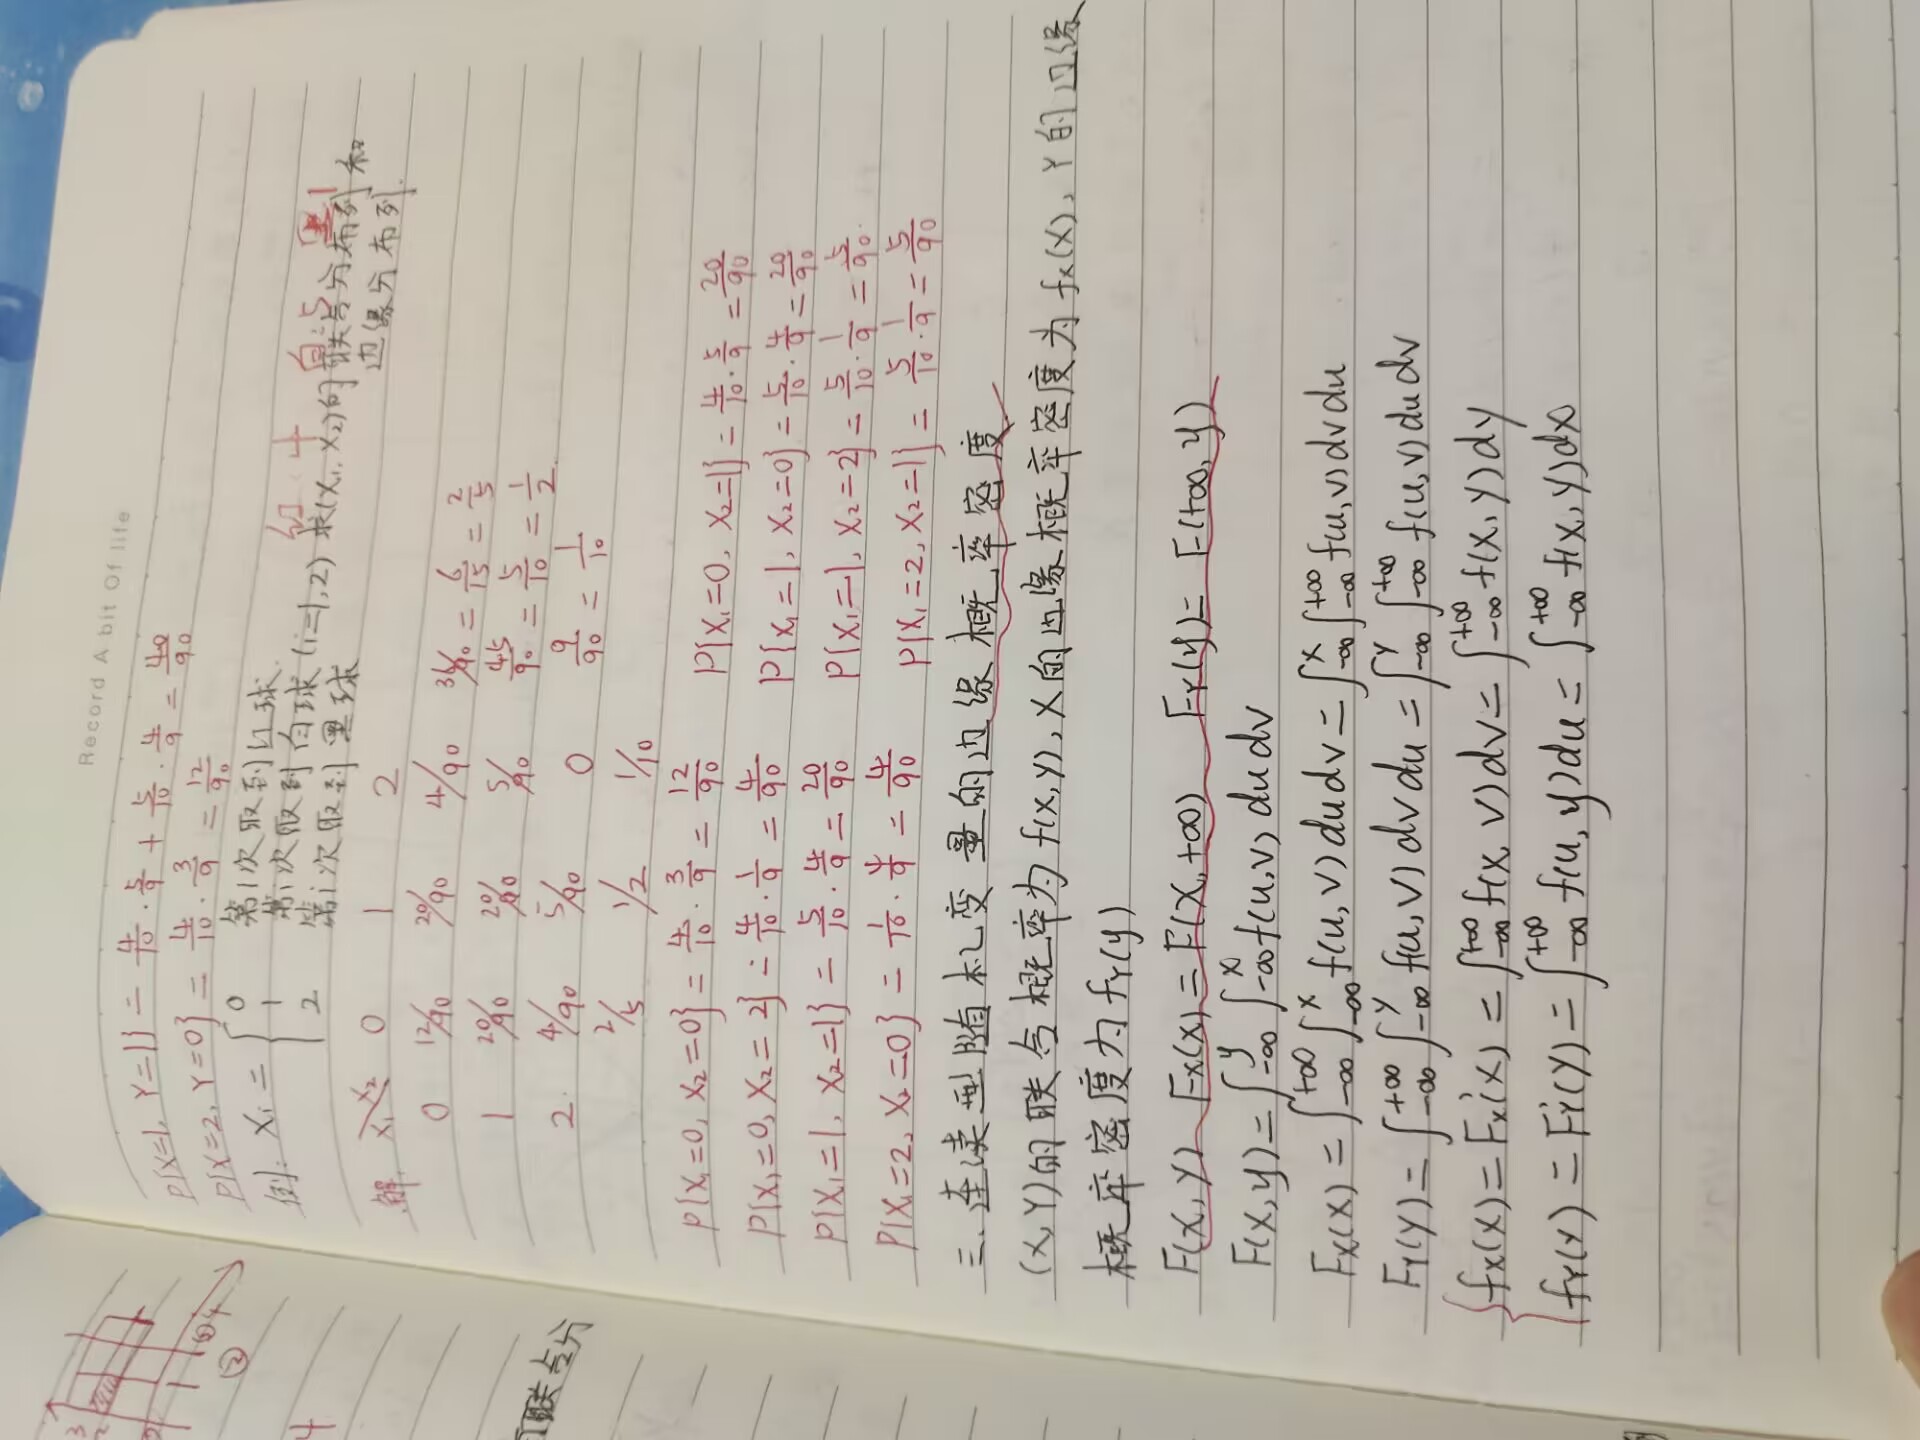 Record A bit Of life
P{X=1, Y=1} = 4/10 · 5/9 + 5/10 · 4/9 = 40/90
P{X=2, Y=0} = 4/10 · 3/9 = 12/90
红 4 白 5 黑 1
例: Xi = { 0 第i次取到红球
1 第i次取到白球 (i=1,2) 求(X1, X2)的联合分布列和
2 第i次取到黑球 边缘分布列.
解. X1\X2 0 1 2
0 12/90 20/90 4/90 36/90 = 6/15 = 2/5
1 20/90 20/90 5/90 45/90 = 5/10 = 1/2
2 4/90 5/90 0 9/90 = 1/10
2/5 1/2 1/10
P{X1=0, X2=0} = 4/10 · 3/9 = 12/90 P{X1=0, X2=1} = 4/10 · 5/9 = 20/90
P{X1=0, X2=2} = 4/10 · 1/9 = 4/90 P{X1=1, X2=0} = 5/10 · 4/9 = 20/90
P{X1=1, X2=1} = 5/10 · 4/9 = 20/90 P{X1=1, X2=2} = 5/10 · 1/9 = 5/90
P{X1=2, X2=0} = 1/10 · 4/9 = 4/90 P{X1=2, X2=1} = 5/10 · 1/9 = 5/90
三. 连续型随机变量的边缘概率密度
(X,Y)的联合概率为f(x,y), X的边缘概率密度为fx(x), Y的边缘
概率密度为fY(y)
F(x,y) Fx(x) = F(x,+∞) FY(y) = F(+∞,y)
F(x,y) = ∫_{-∞}^{y} ∫_{-∞}^{x} f(u,v) du dv
Fx(x) = ∫_{-∞}^{+∞} ∫_{-∞}^{x} f(u,v) du dv = ∫_{-∞}^{x} ∫_{-∞}^{+∞} f(u,v) dv du
FY(y) = ∫_{-∞}^{+∞} ∫_{-∞}^{y} f(u,v) dv du = ∫_{-∞}^{y} ∫_{-∞}^{+∞} f(u,v) du dv
{ fx(x) = Fx'(x) = ∫_{-∞}^{+∞} f(x,v) dv = ∫_{-∞}^{+∞} f(x,y) dy
fY(y) = FY'(y) = ∫_{-∞}^{+∞} f(u,y) du = ∫_{-∞}^{+∞} f(x,y) dx
3
4
②
4
联合分